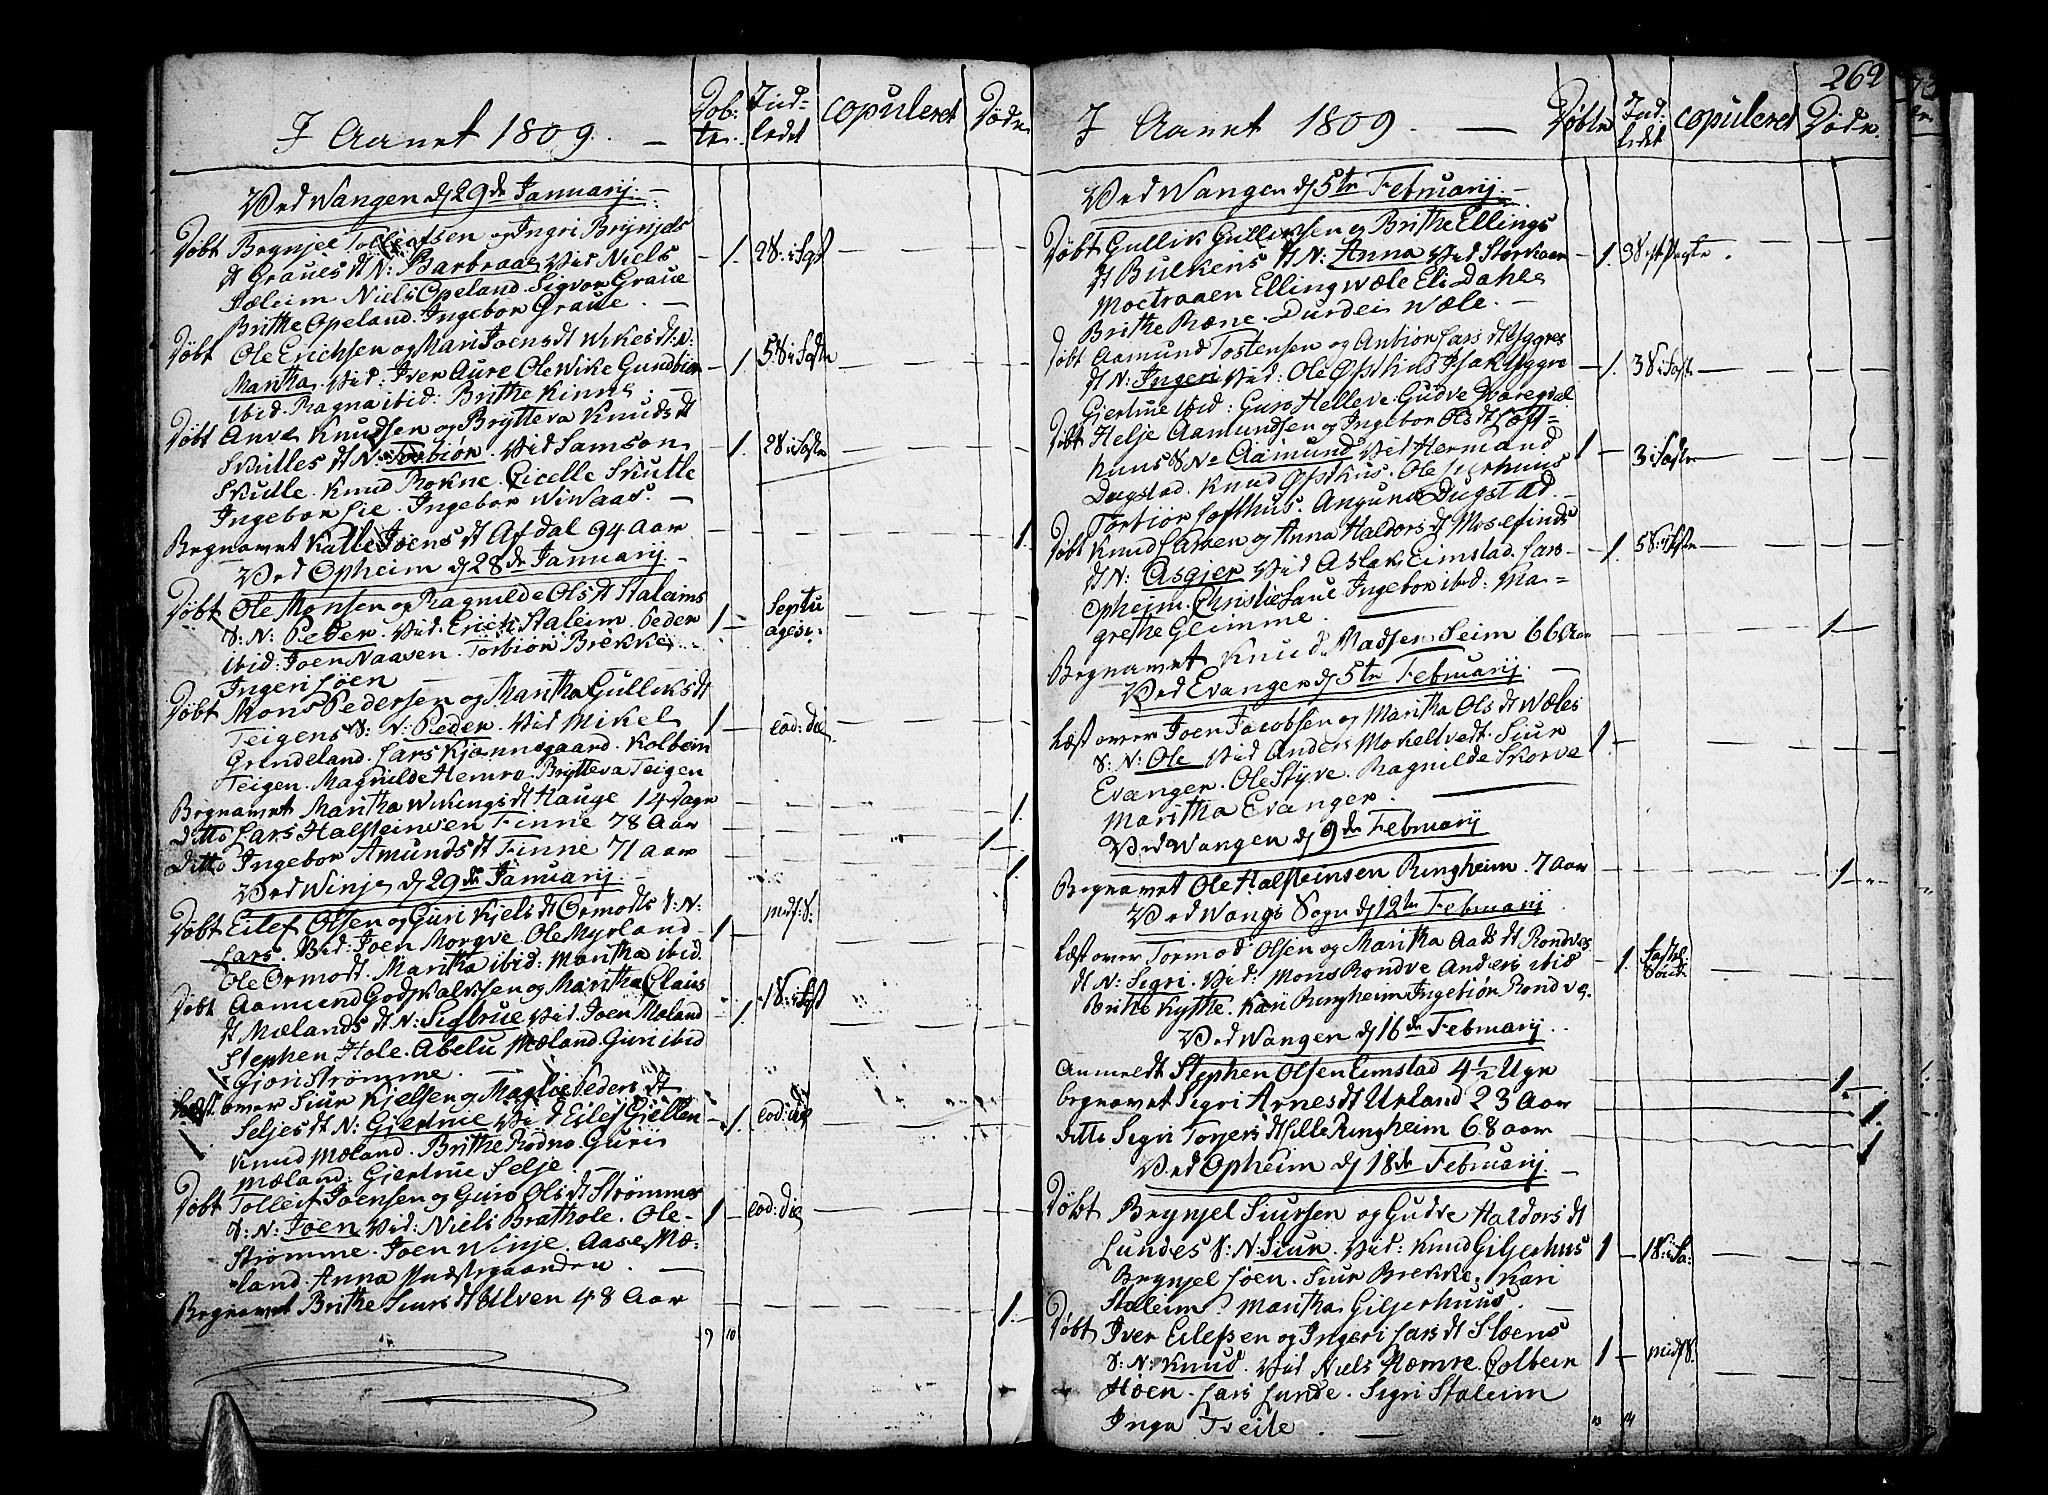 I Aaret 1809. —
Døb: te. Ind= ledt copuleret Døde
Ved Wangen d 29de Januarij. —
Døbt Brynjel Tollefsen og Ingri Brynjels
dt Graues dt N: Barbraae Vid Niels — 1. 28: i Fast
Jæleim Niels Opeland. Sigvor Graue
Brithe Opeland. Ingebor Graue. —
Døbt Ole Erichsen og Mari Joens dt Wikes dt: N:
Maritha. Vid: Iver Aure Ole Wike Gundbior — 1. 58 i Faste
ibid. Ragna ibid: Brithe Kinne —
Døbt Anve Knudsen og Brytteva Knuds dt
Skutles dt N: Torbiør. Vid Samson — 1. 28 i Faste
Skutle. Knud Rokne. Cicelle Skutle
Ingebor Lie. Ingebor Wiwaas. —
Begravet Kalle Joens dt Afdal 94 Aar — 1.
Ved Opheim d 28de Januarij
Døbt Ole Monsen og Ragnilde Ols dt Staleims
S: N: Peder. Vid: Erich Staleim. Peder 1 — Septu agesi:
ibid: Joen Naasen. Torbiør Brekke.
Ingeri Løen —
Døbt Mons Pedersen og Maritha Gulliks dt
Teigens S: N: Peder. Vid Mikel 1 — eod: die
Grindeland. Lars Kjønnagaard. Kolbein
Teigen. Magnilde Hemre. Brytteva Teigen
Begravet Maritha Wikings dt Hauge 14 Dage — 1
Ditto Lars Halsteinsen Finne 78 Aar — 1
Ditto Ingebor Amunds dt Finne 71 aar — 1
Ved Winje d 29de Januarij. —
Døbt Eilef Olsen og Guri Kjels dt Ormodts S: N:
Lars. Vid: Joen Morgve Ole Myrland 1 — midf: S:
Ole Ormodt. Maritha ibid: Maritha ibid.
Døbt Aamund Godskalksen og Maritha Claus
dt Mælands dt N: Sigbrue Vid Joen Moland — 1. 18: i Fast
Stephen Hole. Abelu Mæland. Guri ibid
Gjori Strømme. —
Læst over Siur Kjelsen og Maglie Peders dt
Seljes dt N: Giertrue Vid Eilef Gjellen — 1. eod: die
Knud Mæland. Brithe Rodna Guri
Mæland: Giertrue Selje.
Døbt Tolleif Joensen og Guro Ols dt Strømmes
S: N: Joen Vid: Niels Brathole. Ole 1 — eod: die
Strømme. Joen Winje. Aase Mæ=
land. Anna
Begravet Brithe Siurs dt Ulven 48 Aar — 1.
9 10
262
I Aaret 1809. —
Døbte Ind= ledt copuleret Døde.
Ved Wangen d 5te Februarij. —
Døbt Gullik Gulliksen og Brithe Ellings
dt Bulkens dt N: Anna Vid Storkaar — 1.
Moetraaen Elling Wæle Eli Dahle
Brithe Ræne. Durdei Wæle. —
Døbt Aamund Tostensen og Anbiør Lars dt Ygges
dt N: Ingeri Vid: Ole Ofsthus Isak Ygge — 1. 38 i Faste
Giertrue ibid: Guro Helleve. Gudve
Døbt Helje Aamundsen og Ingebor Ols dt Loft=
huus S N: Aamund Vid Hermand 1 — 3 i Faste
Dugstad. Knud Ofsthus. Ole
Torbiør Lofthus. Anguna Dugstad. —
Døbt Knud Larsen og Anna Haldors dt Mosefinds
dt N: Asgjer Vid Aslak Eimstad. Lars — 1. 58: i Faste
Opheim. Christie Saue Ingebor ibid: Ma=
grethe Glimme. —
Begravet Knud Madsen Seim 66 Aar — 1
Ved Evanger d 5te Februarij. —
Læst over Joen Jacobsen og Maritha Ols dt Wæles
S: N: Ole Vid Anders Mokeltvedt. Siur 1 —
Evanger. Ole Styve. Ragnilde Skorve
Maritha Evanger. —
Ved Wangen d 9de Februarij
Begravet Ole Halsteinsen Ringheim 7 Aar — 1
Ved Wangs Sogn d 12te Februarij.
Læst over Tormod Olsen og Maritha Aads dt Rondves
dt N: Sigri. Vid: Mons Rondve Anders ibid — 1.
Brithe Kytte. Kari Ringheim. Ingebior Rondve.
Ved Wangen d 16de Februarij.
Anmeldt Stephen Olsen Eimstad 4½ Uge — 1.
begravet Sigri Arnes dt Urland 23 Aar — 1.
ditto Sigri Torjers dt Lille Ringheim 68 aar — 1
Ved Opheim d 18de Februarij. —
Døbt Brynjel Siursen og Gudve Haldors dt
Lundes S: N: Siur. Vid: Knud Giljerhus 1 — 18: i Fa:
Brynjel Løen. Siur Brekke. Kari
Staleim. Maritha Giljerhuus. —
Døbt Iver Eilefsen og Ingeri Lars dt Slæens
S: N: Knud. Vid Niels Hæmre. Colbein 1 — midf S.
Høen. Lars Lunde. Sigri Staleim
Inga Tveite. —
13 14